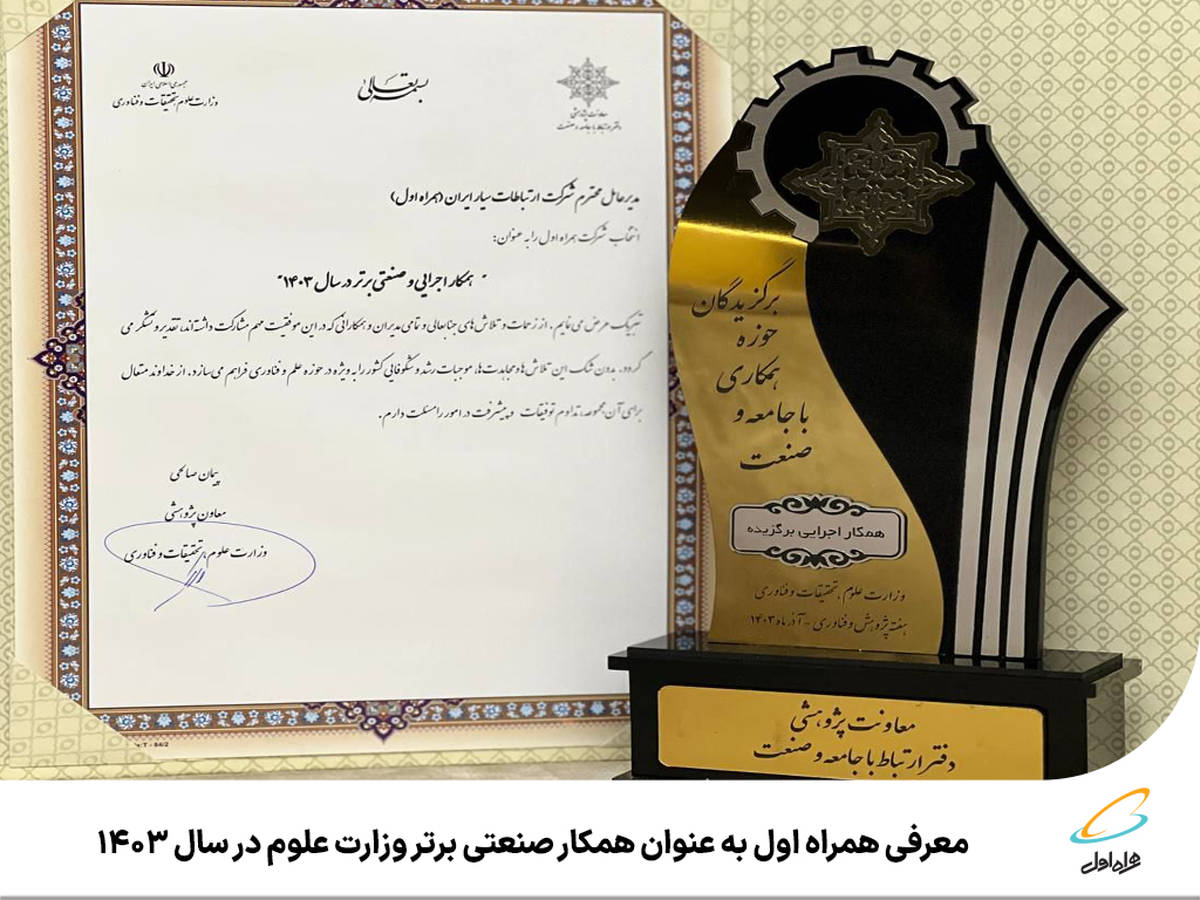 بسمه تعالی
جمهوری اسلامی ایران
وزارت علوم، تحقیقات و فناوری
معاونت پژوهشی
دفتر ارتباط با جامعه و صنعت
مدیرعامل محترم شرکت ارتباطات سیار ایران (همراه اول)
انتخاب شرکت همراه اول را به عنوان:
"همکار اجرایی و صنعتی برتر در سال ۱۴۰۳"
تبریک عرض می نمایم. از زحمات و تلاش های جنابعالی و تمامی مدیران و همکارانی که در این موفقیت مهم مشارکت داشته‌اند، تقدیر و تشکر می
گردد. بدون شک این تلاش ها و مجاهدت ها، موجبات رشد و شکوفایی کشور را به ویژه در حوزه علم و فناوری فراهم می سازد. از خداوند متعال
برای آن مجموعه، تداوم توفیقات و پیشرفت در امور را مسئلت دارم.
پیمان صالحی
معاون پژوهشی
وزارت علوم، تحقیقات و فناوری
برگزیدگان
حوزه
همکاری
با جامعه و
صنعت
همکار اجرایی برگزیده
وزارت علوم، تحقیقات و فناوری
هفته پژوهش و فناوری - آذرماه ۱۴۰۳
معاونت پژوهشی
دفتر ارتباط با جامعه و صنعت
معرفی همراه اول به عنوان همکار صنعتی برتر وزارت علوم در سال ۱۴۰۳
همراه اول